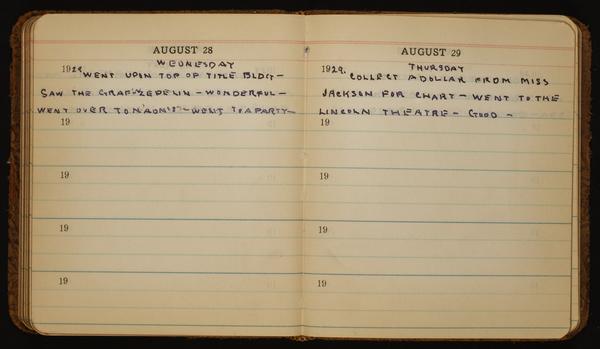 AUGUST 28
WEDNESDAY
1929 WENT UPON TOP OF TITLE BLDG -
SAW THE GRAF ZEPELIN - WONDERFUL -
WENT OVER TO NAOMI'S - WENT TO A PARTY -
19
19
19
19
AUGUST 29
THURSDAY
1929. COLLECT A DOLLAR FROM MISS
JACKSON FOR CHART - WENT TO THE
LINCOLN THEATRE - GOOD -
19
19
19
19